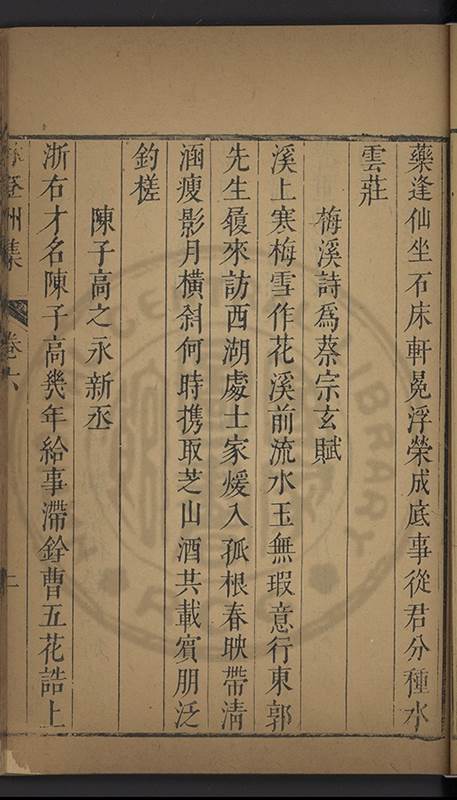 藥逢仙坐石床軒冕浮榮成底事從君分種水
雲莊
梅溪詩為蔡宗玄賦
溪上寒梅雪作花溪前流水玉無瑕意行東郭
先生屐來訪西湖處士家煖入孤根春映帶清
涵瘦影月橫斜何時携取芝山酒共載賓朋泛
釣槎
陳子高之永新丞
浙右才名陳子高幾年給事滯銓曹五花誥上
登州集
卷六